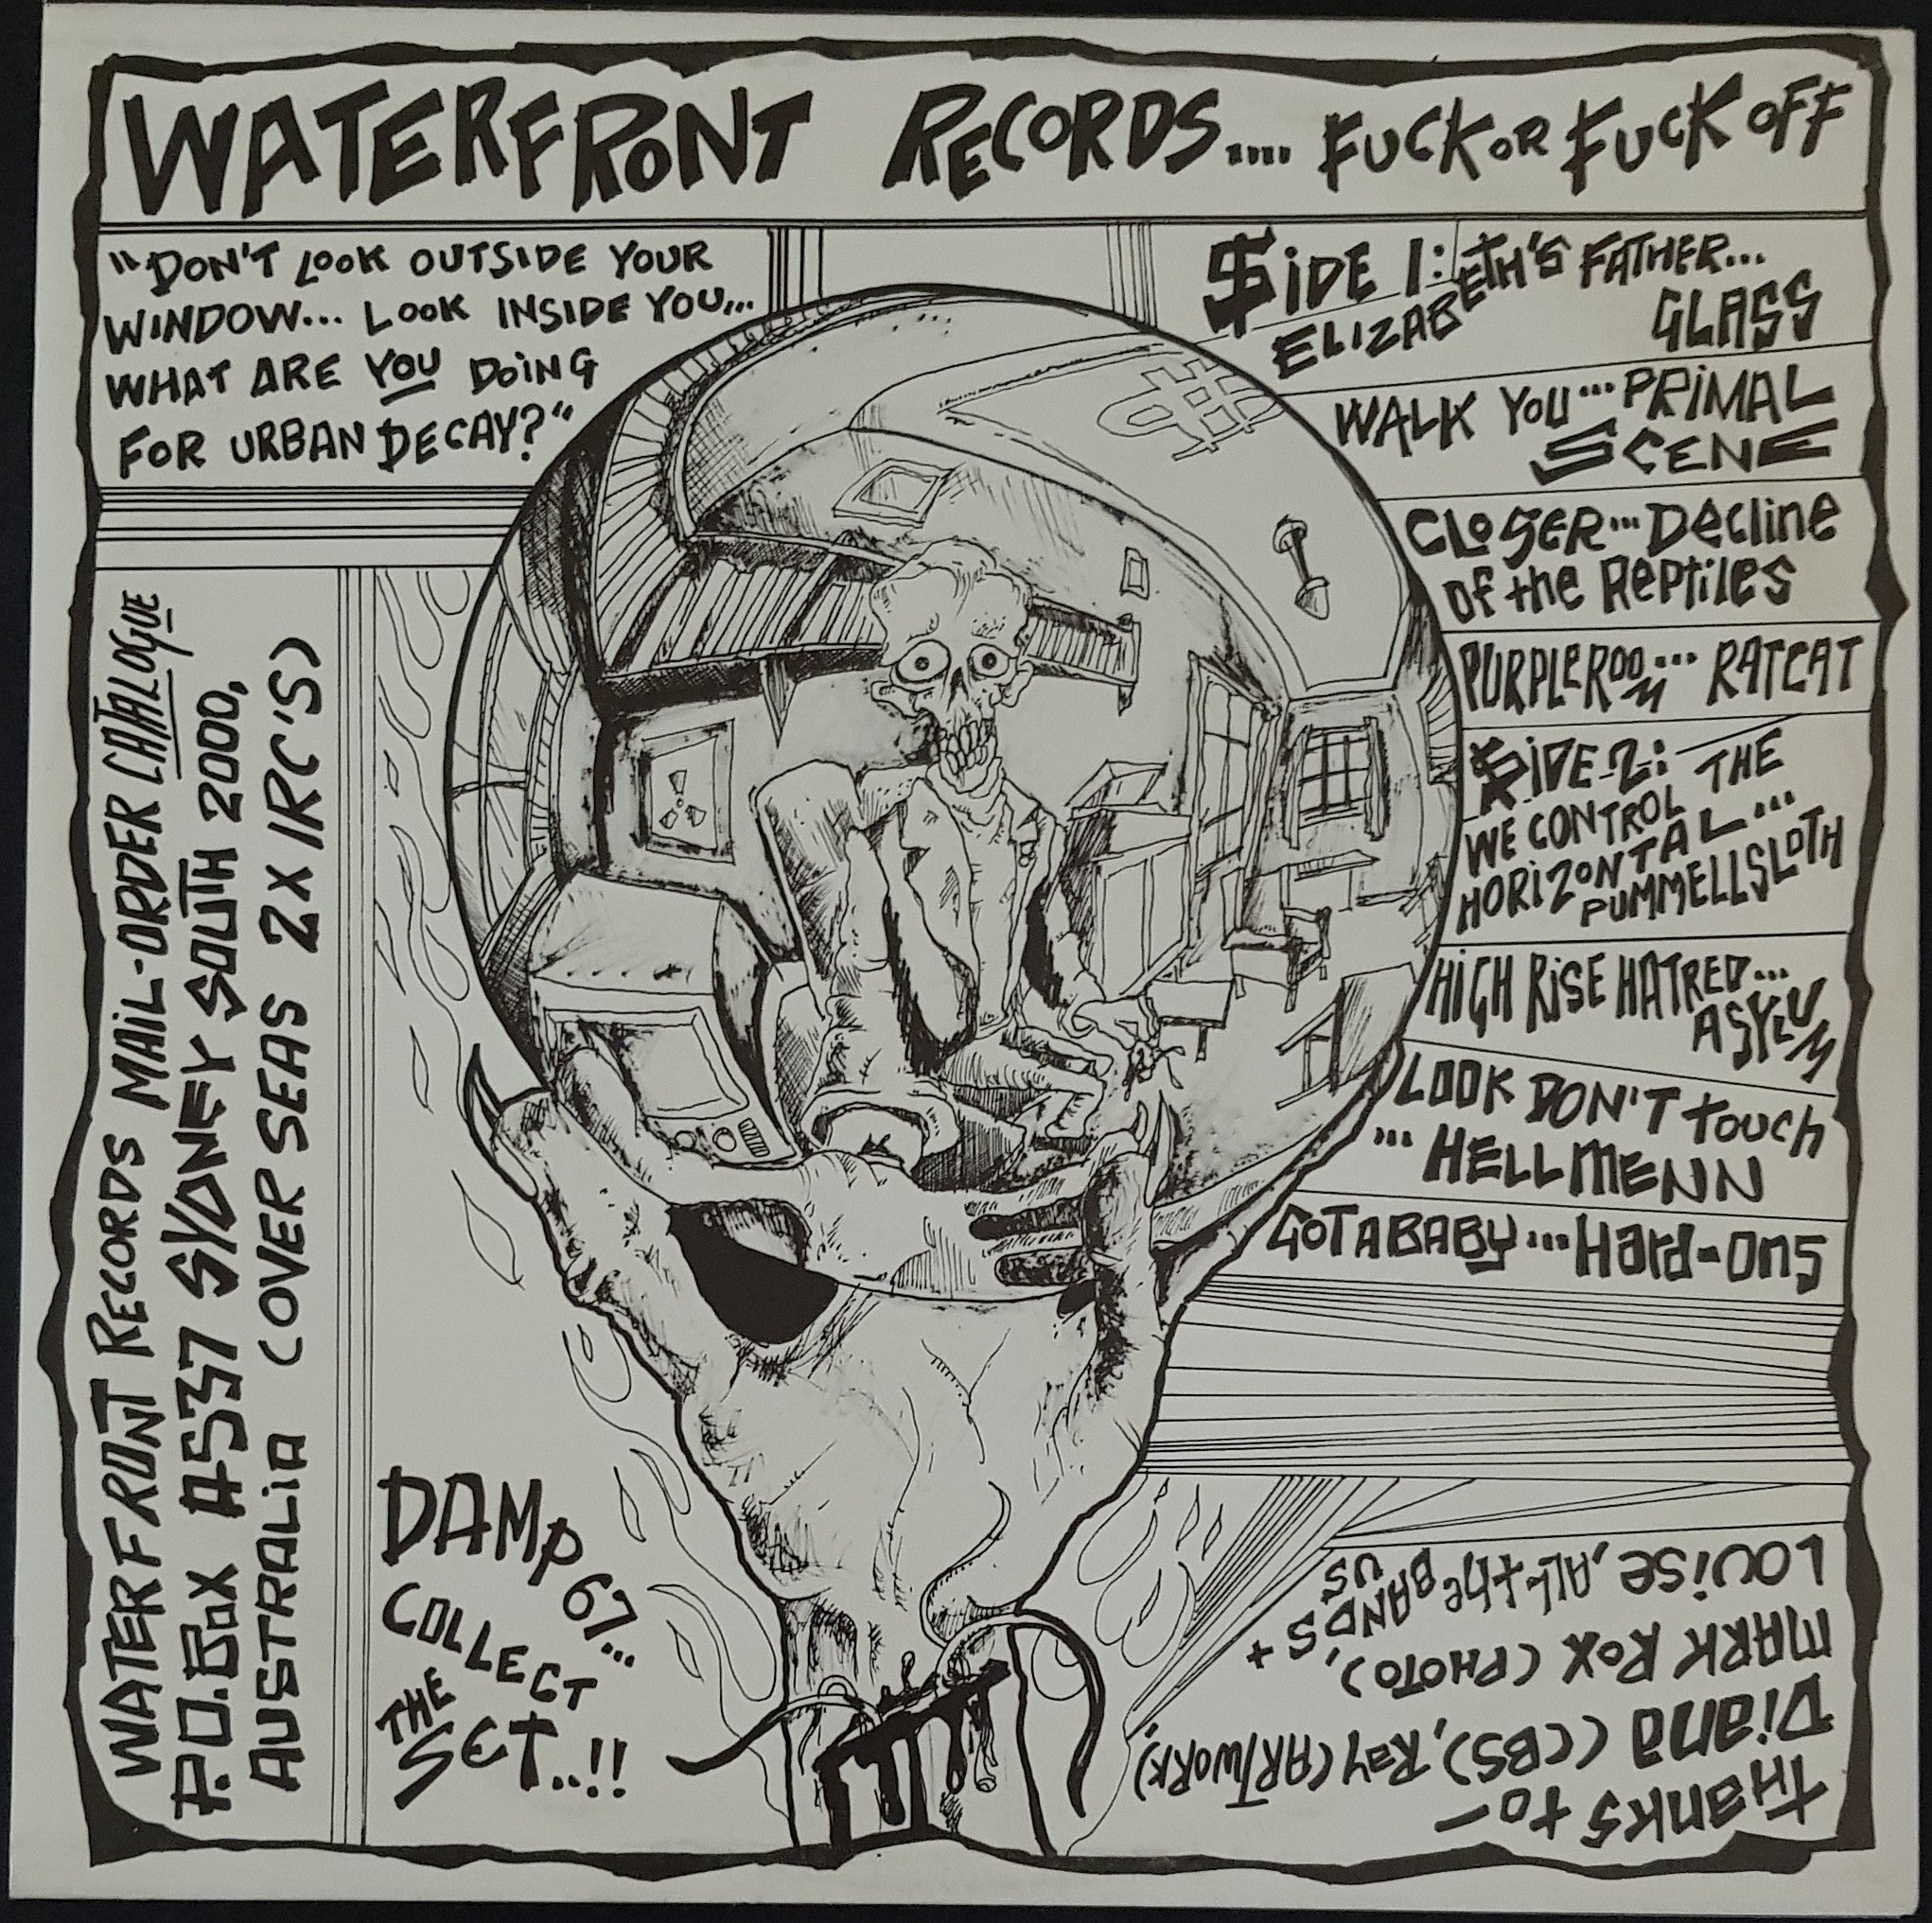 WATERFRONT RECORDS.... FUCK OR FUCK OFF
"DON'T LOOK OUTSIDE YOUR
WINDOW... LOOK INSIDE YOU...
WHAT ARE YOU DOING
FOR URBAN DECAY?"
$IDE 1:
ELIZABETH'S FATHER...
GLASS
WALK YOU... PRIMAL
SCENE
CLOSER... Decline
of the Reptiles
PURPLE ROOM... RATCAT
$IDE 2:
WE CONTROL THE
HORIZONTAL...
PUMMELLSLOTH
HIGH RISE HATRED...
ASYLUM
LOOK DON'T touch
... HELLMENN
GOT A BABY... Hard-ons
WATERFRONT RECORDS MAIL-ORDER CATALOGUE
P.O. BOX A537 SYDNEY SOUTH 2000,
AUSTRALIA (OVER SEAS 2X IRC'S)
DAMP 67...
COLLECT
THE
SET..!!
thanks to-
Diana (CBS), Ray (ARTWORK),
MARK ROX (PHOTO),
LOUISE, ALL the BANDS +
US